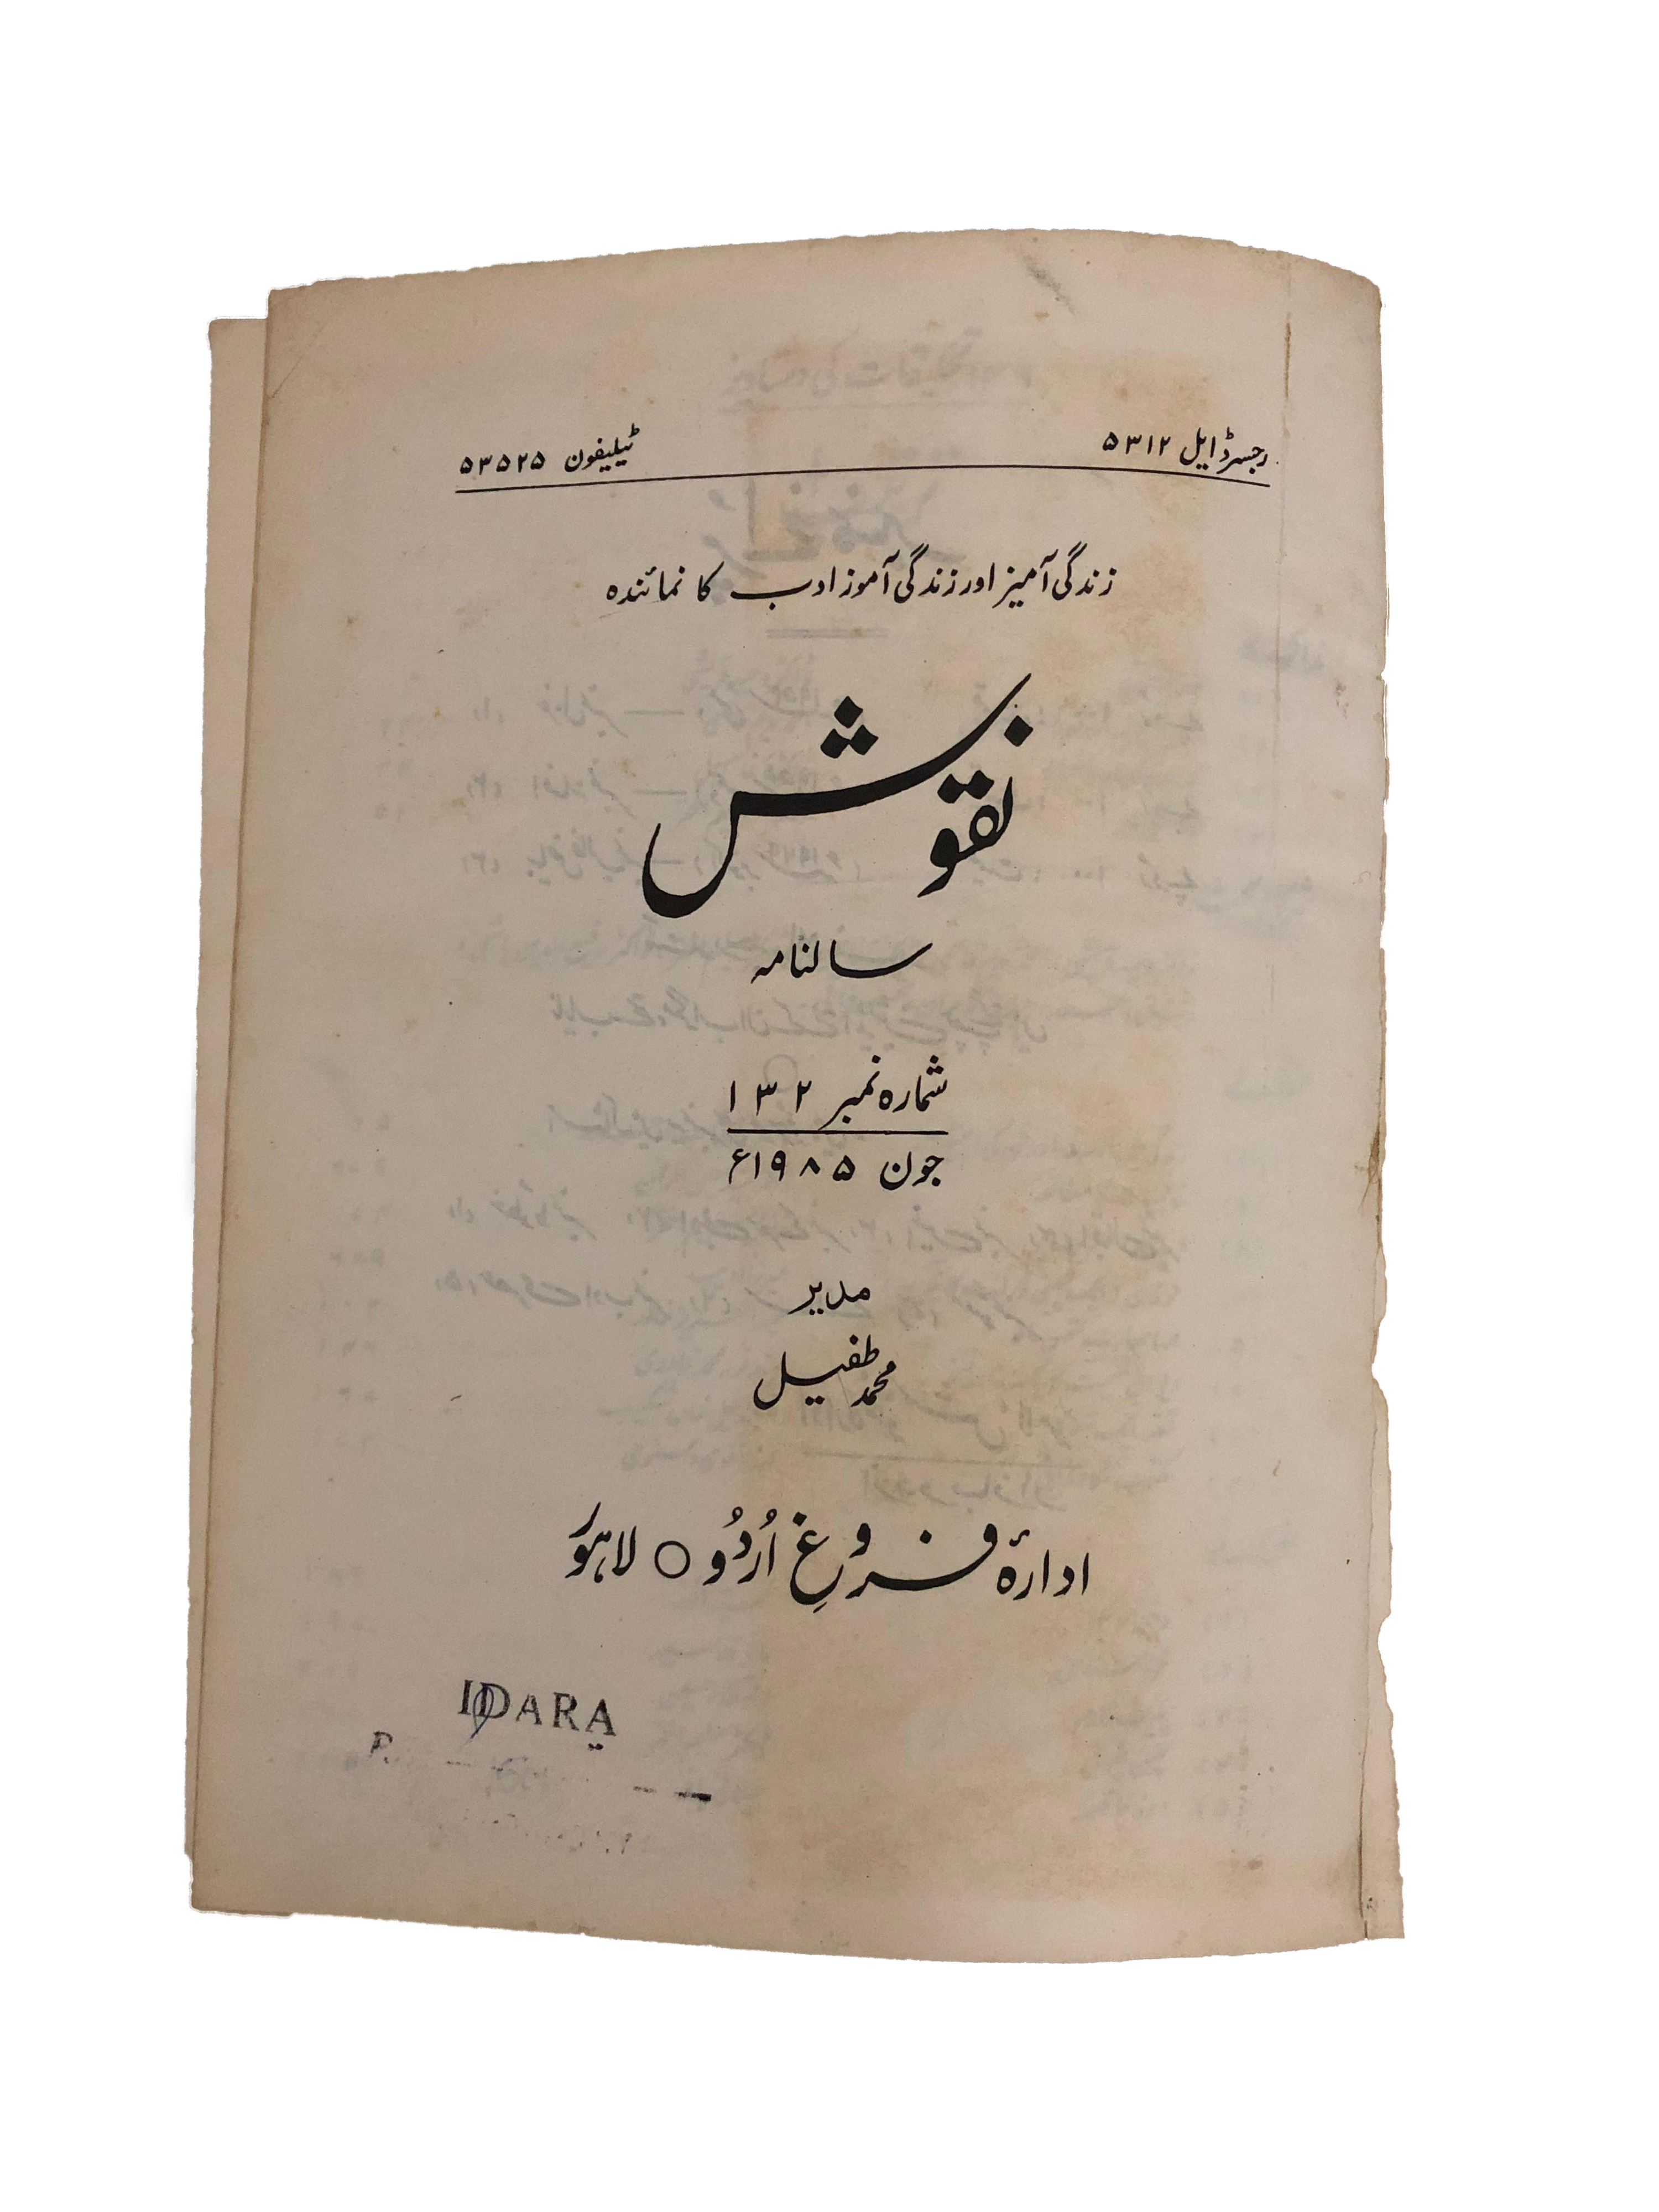 رجسٹرڈ ایل ۵۳۱۲
ٹیلیفون ۵۳۵۲۵
زندگی آمیز اور زندگی آموز ادب کا نمائندہ
نقوش
سالنامہ
شمارہ نمبر ۱۳۲
جون ۱۹۸۵ء
مدیر
محمد طفیل
ادارۂ فروغِ اُردُو ○ لاہور
IDARA
P.